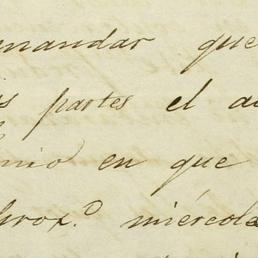 mandar que
partes el a
en que
prox.º miércole